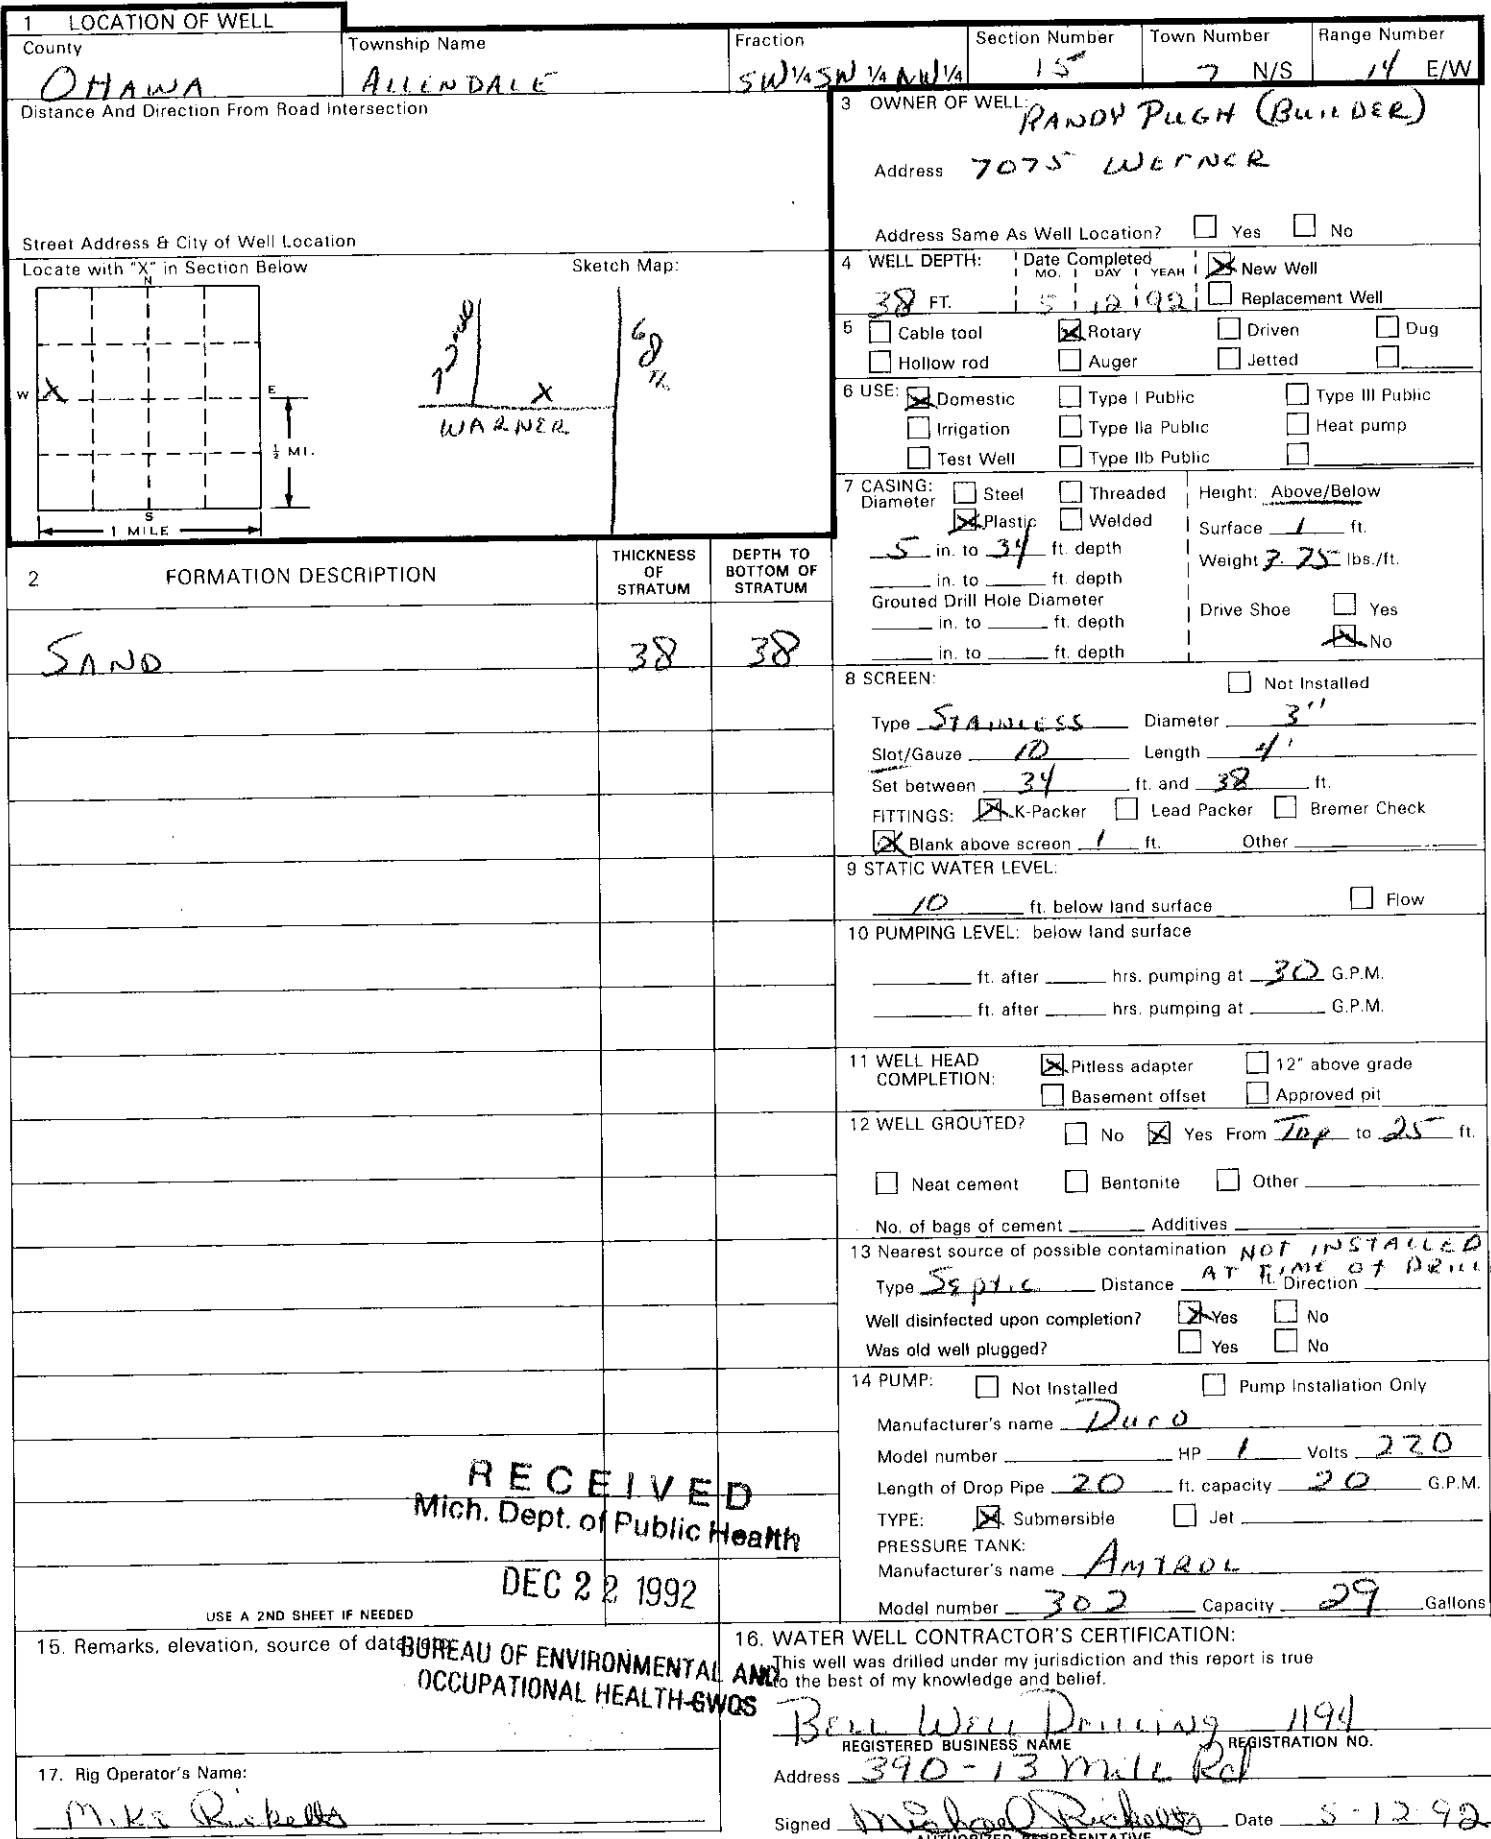 1 LOCATION OF WELL
County
OHAWA
Township Name
ALLENDALE
Fraction
SW 1/4 SW 1/4 NW 1/4
Section Number
15
Town Number
7 N/S
Range Number
14 E/W
Distance And Direction From Road Intersection
Street Address & City of Well Location
Locate with "X" in Section Below
Sketch Map:
N
W X E
S
1/2 MI.
1 MILE
X
WARNER
68 Th
3 OWNER OF WELL: RANDY PUGH (BUILDER)
Address 7075 WERNER
Address Same As Well Location? Yes No
4 WELL DEPTH: 38 FT.
Date Completed
MO. DAY YEAR
5 12 92
X New Well
Replacement Well
5 Cable tool X Rotary Driven Dug
Hollow rod Auger Jetted
6 USE: X Domestic Type I Public Type III Public
Irrigation Type IIa Public Heat pump
Test Well Type IIb Public
7 CASING: Steel Threaded
Diameter X Plastic Welded
5 in. to 34 ft. depth
in. to ft. depth
Grouted Drill Hole Diameter
in. to ft. depth
in. to ft. depth
Height: Above/Below
Surface 1 ft.
Weight 2.75 lbs./ft.
Drive Shoe Yes
X No
2 FORMATION DESCRIPTION
THICKNESS OF STRATUM
DEPTH TO BOTTOM OF STRATUM
SAND 38 38
8 SCREEN: Not Installed
Type STAINLESS Diameter 3"
Slot/Gauze 10 Length 4'
Set between 34 ft. and 38 ft.
FITTINGS: X K-Packer Lead Packer Bremer Check
X Blank above screen 1 ft. Other
9 STATIC WATER LEVEL:
10 ft. below land surface Flow
10 PUMPING LEVEL: below land surface
ft. after hrs. pumping at 30 G.P.M.
ft. after hrs. pumping at G.P.M.
11 WELL HEAD COMPLETION: X Pitless adapter 12" above grade
Basement offset Approved pit
12 WELL GROUTED? No X Yes From Top to 25 ft.
Neat cement Bentonite Other
No. of bags of cement Additives
13 Nearest source of possible contamination NOT INSTALLED
AT TIME OF DRILL
Type Septic Distance ft. Direction
Well disinfected upon completion? X Yes No
Was old well plugged? Yes No
14 PUMP: Not Installed Pump Installation Only
Manufacturer's name Duro
Model number HP 1 Volts 220
Length of Drop Pipe 20 ft. capacity 20 G.P.M.
TYPE: X Submersible Jet
PRESSURE TANK:
Manufacturer's name AMTROL
Model number 302 Capacity 29 Gallons
RECEIVED
Mich. Dept. of Public Health
DEC 22 1992
USE A 2ND SHEET IF NEEDED
15. Remarks, elevation, source of data, etc.
BUREAU OF ENVIRONMENTAL AND
OCCUPATIONAL HEALTH-GWQS
16. WATER WELL CONTRACTOR'S CERTIFICATION:
This well was drilled under my jurisdiction and this report is true
to the best of my knowledge and belief.
BELL WELL DRILLING 1194
REGISTERED BUSINESS NAME REGISTRATION NO.
Address 390-13 Mile Rd
Signed Michael Ricketts Date 5-12-92
AUTHORIZED REPRESENTATIVE
17. Rig Operator's Name:
Mike Ricketts